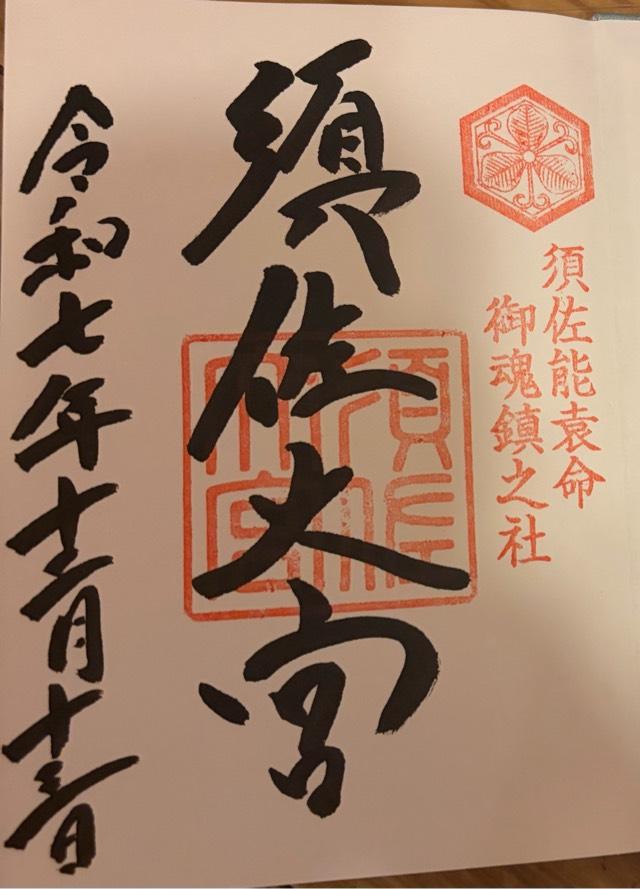 須佐能袁命
御魂鎮之社
須佐大宮
須佐
大宮
令和七年十二月十三日